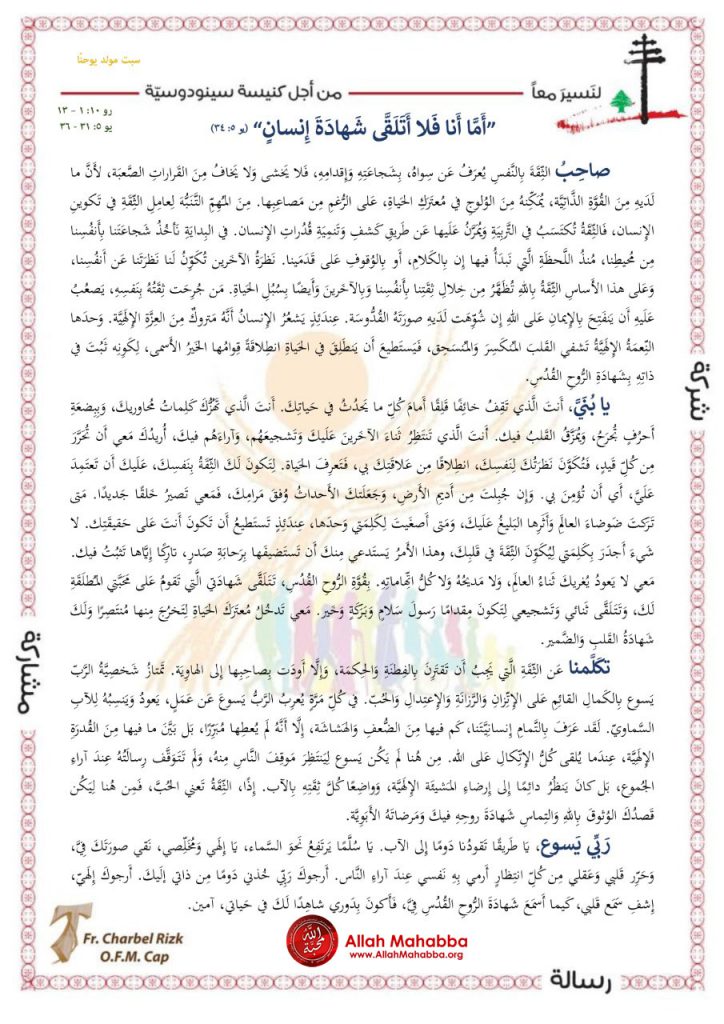 سبت مولد يوحنّا
لنَسيرَ معاً
من أجل كنيسة سينودوسيّة
رو ١٠: ١ - ١٣
يو ٥: ٣١ - ٣٦
”أَمَّا أَنا فَلا أَتَلَقَّى شَهادَةَ إِنسانٍ“ (يو ٥: ٣٤)
صاحِبُ الثِّقَةِ بِالنَّفسِ يُعرَفُ عَن سِواهُ، بِشَجاعَتِهِ وَإِقدامِهِ، فَلا يَخشى وَلا يَخافُ مِنَ القَراراتِ الصَّعبَة، لأَنَّ ما
لَدَيهِ مِنَ القُوَّةِ الذَّاتِيَّة، يُمَكِّنُهُ مِنَ الوُلوجِ في مُعتَرَكِ الحَياةِ، عَلى الرُّغمِ مِن مَصاعِبِها. مِنَ المُهِمِّ التَّنَبُّهُ لِعامِلِ الثِّقَةِ في تَكوينِ
الإِنسان، فَالثِّقَةُ تُكتَسَبُ في التَّربِيَةِ وَيُمَرَّنُ عَلَيها عَن طَريقِ كَشفِ وَتَنمِيَةِ قُدُراتِ الإِنسان. في البِدايَةِ نَأخُذُ شَجاعَتَنا بِأَنفُسِنا
مِن مُحيطِنا، مُنذُ اللَّحظَةِ الَّتي نَبدَأُ فيها إِن بِالكَلامِ، أَو بِالوُقوفِ عَلى قَدَمَينا. نَظرَةُ الآخَرينِ تُكَوِّنُ لَنا نَظرَتَنا عَن أَنفُسِنا،
وَعَلى هذا الأَساسِ الثِّقَةُ بِاللهِ تُظَهَّرُ مِن خِلالِ ثِقَتِنا بِأَنفُسِنا وَبِالآخَرينَ وَأَيضًا بِسُبُلِ الحَياةِ. مَن جُرِحَت ثِقَتُهُ بِنَفسِهِ، يَصعُبُ
عَلَيهِ أَن يَنفَتِحَ بِالإِيمانِ عَلى اللهِ إِن شُوِّهَت لَدَيهِ صورَتَهُ القُدُّوسَة. عِندَئِذٍ يَشعُرُ الإِنسانُ أَنَّهُ مَتروكٌ مِنَ العِزَّةِ الإِلهِيَّة. وَحدَها
النِّعمَةُ الإِلهِيَّةُ تَشفي القَلبَ المُنكَسِرَ وَالمُنسَحِق، فَيَستَطيعَ أَن يَنطَلِقَ في الحَياةِ انطِلاقَةً قِوامُها الخَيرُ الأَسمى، لِكَونِهِ ثَبُتَ في
ذاتِهِ بِشَهادَةِ الرُّوحِ القُدُسِ.
يا بُنَيَّ، أَنتَ الَّذي تَقِفُ خائِفًا قَلِقًا أَمامَ كُلِّ ما يَحدُثُ في حَياتِكَ. أَنتَ الَّذي تَهُزُّكَ كَلِماتُ مُحاوِريكَ، وَبِبِضعَةِ
أَحرُفٍ تُجرَحُ، وَيُمَزَّقُ القَلبُ فيك. أَنتَ الَّذي تَنتَظِرُ ثَناءَ الآخَرينَ عَلَيكَ وَتَشجيعَهُم، وَآراءَهُم فيكَ، أُريدُكَ مَعي أَن تُحَرَّرَ
مِن كُلِّ قَيدٍ، فَتُكَوَّنَ نَظرَتُكَ لِنَفسِكَ، انطِلاقًا مِن عَلاقَتِكَ بي، فَتَعرِفَ الحَياة. لِتَكونَ لَكَ الثِّقَةُ بِنَفسِكَ، عَلَيكَ أَن تَعتَمِدَ
عَلَيَّ، أَي أَن تُؤمِنَ بي. وَإِن جُبِلتَ مِن أَديمِ الأَرضِ، وَجَعَلَتكَ الأَحداثُ وُفقَ مَرامِكَ، فَمَعي تَصيرُ خَلقًا جَديدًا. مَتى
تَرَكتَ ضَوضاءَ العالَمِ وَأَثَرِها البَليغُ عَلَيكَ، وَمَتى أَصغَيتَ لِكَلِمَتي وَحدَها، عِندَئِذٍ تَستَطيعُ أَن تَكونَ أَنتَ عَلى حَقيقَتِكَ. لا
شَيءَ أَجدَرَ بِكَلِمَتي لِيُكَوِّنَ الثِّقَةَ في قَلبِكَ، وَهذا الأَمرُ يَستَدعي مِنكَ أَن تَستَضيفَها بِرَحابَةِ صَدرٍ، تارِكًا إِيَّاها تَثبُتُ فيك.
مَعي لا يَعودُ يُغريكَ ثَناءُ العالَمِ، وَلا مَديحُهُ وَلا كُلُّ اتِّهاماتِهِ. بِقُوَّةِ الرُّوحِ القُدُسِ، تَتَلَقَّى شَهادَتي الَّتي تَقومُ عَلى مَحَبَّتي المُطلَقَةِ
لَكَ، وَتَتَلَقَّى ثَنائي وَتَشجيعي لِتَكونَ مِقدامًا رَسولَ سَلامٍ وَبَرَكَةٍ وَخَير. مَعي تَدخُلُ مُعتَرَكَ الحَياةِ لِتَخرُجَ مِنها مُنتَصِرًا وَلَكَ
شَهادَةُ القَلبِ وَالضَّمير.
تَكَلَّمنا عَنِ الثِّقَةِ الَّتي يَجِبُ أَن تَقتَرِنَ بِالفِطنَةِ وَالحِكمَة، وَإِلَّا أَودَت بِصاحِبِها إِلى الهاوِيَة. تَمتازُ شَخصِيَّةُ الرَّبِّ
يَسوع بِالكَمالِ القائِمِ عَلى الإِتِّزانِ وَالرَّزانَةِ وَالإِعتِدالِ وَالحُبّ. في كُلِّ مَرَّةٍ يُعرِبُ الرَّبُّ يَسوع عَن عَمَلٍ، يَعودُ وَيَنسِبُهُ لِلآبِ
السَّماوِيّ. لَقَد عَرَفَ بِالتَّمامِ إِنسانِيَّتَنا، كَم فيها مِنَ الضُّعفِ وَالهَشاشَة، إِلَّا أَنَّهُ لَم يُعطِها مُبَرِّرًا، بَل بَيَّنَ ما فيها مِنَ القُدرَةِ
الإِلهِيَّة، عِندَما يُلقى كُلُّ الإِتِّكالِ عَلى الله. مِن هُنا لَم يَكُن يَسوع لِيَنتَظِرَ مَوقِفَ النَّاسِ مِنهُ، وَلَم تَتَوَقَّف رِسالَتُهُ عِندَ آراءِ
الجُموع، بَل كانَ يَنظُرُ دائِمًا إِلى إِرضاءِ المَشيئَة الإِلهِيَّة، وَواضِعًا كُلَّ ثِقَتِهِ بِالآب. إِذًا، الثِّقَةُ تَعني الحُبَّ، فَمِن هُنا لِيَكُن
قَصدُكَ الوُثوقَ بِاللهِ وَالتِماسِ شَهادَةَ روحِهِ فيكَ وَمَرضاتَهُ الأَبَوِيَّة.
رَبِّي يَسوع، يَا طَريقًا تَقودُنا دَومًا إِلى الآب. يَا سُلَّمًا يَرتَفِعُ نَحوَ السَّماء، يَا إِلهي وَمُخَلِّصي، نَقي صورَتَكَ فِيَّ،
وَحَرِّر قَلبي وَعَقلي مِن كُلِّ انتِظارٍ أَرمي بِهِ نَفسي عِندَ آراءِ النَّاس. أَرجوكَ رَبِّي خُذني دَومًا مِن ذاتي إِلَيكَ. أَرجوكَ إِلهِيّ،
إِشفِ سَمعَ قَلبي، كَيما أَسمَعَ شَهادَةَ الرُّوحِ القُدُسِ فِيَّ، فَأَكونَ بِدَوري شاهِدًا لَكَ في حَياتي، آمين.
شركة
مشاركة
رسالة
Fr. Charbel Rizk
O.F.M. Cap
الله محبة
Allah Mahabba
www.AllahMahabba.org